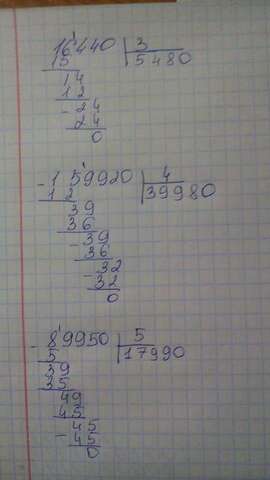 16440 | 3
15 5480
14
12
- 24
24
0
- 159920 | 4
12 39980
39
36
- 39
36
- 32
32
0
- 89950 | 5
5 17990
39
35
49
45
- 45
45
0